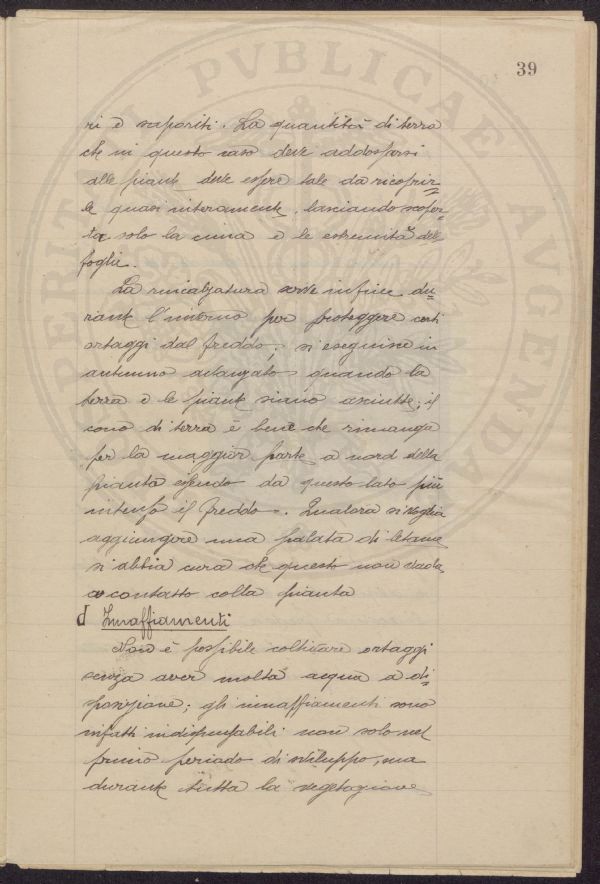 39
ri e saporiti. La quantità di terra
che in questo caso deve addossarsi
alle piante deve essere tale da ricoprir=
le quasi interamente, lasciando scoper=
ta solo la cima e le estremità delle
foglie.
La rincalzatura serve infine du=
rante l'inverno per proteggere certi
ortaggi dal freddo; si eseguisce in
autunno avanzato quando la
terra e le piante siano asciutte; il
cono di terra è bene che rimanga
per la maggior parte a nord della
pianta essendo da questo lato più
intenso il freddo. Qualora si voglia
aggiungere una palata di letame
si abbia cura che questo non vada
a contatto colla pianta
d Innaffiamenti
Non è possibile coltivare ortaggi
senza aver molta acqua a di=
sposizione; gli innaffiamenti sono
infatti indispensabili non solo nel
primo periodo di sviluppo, ma
durante tutta la vegetazione
PERITAE PVBLICAE AVGENDAE